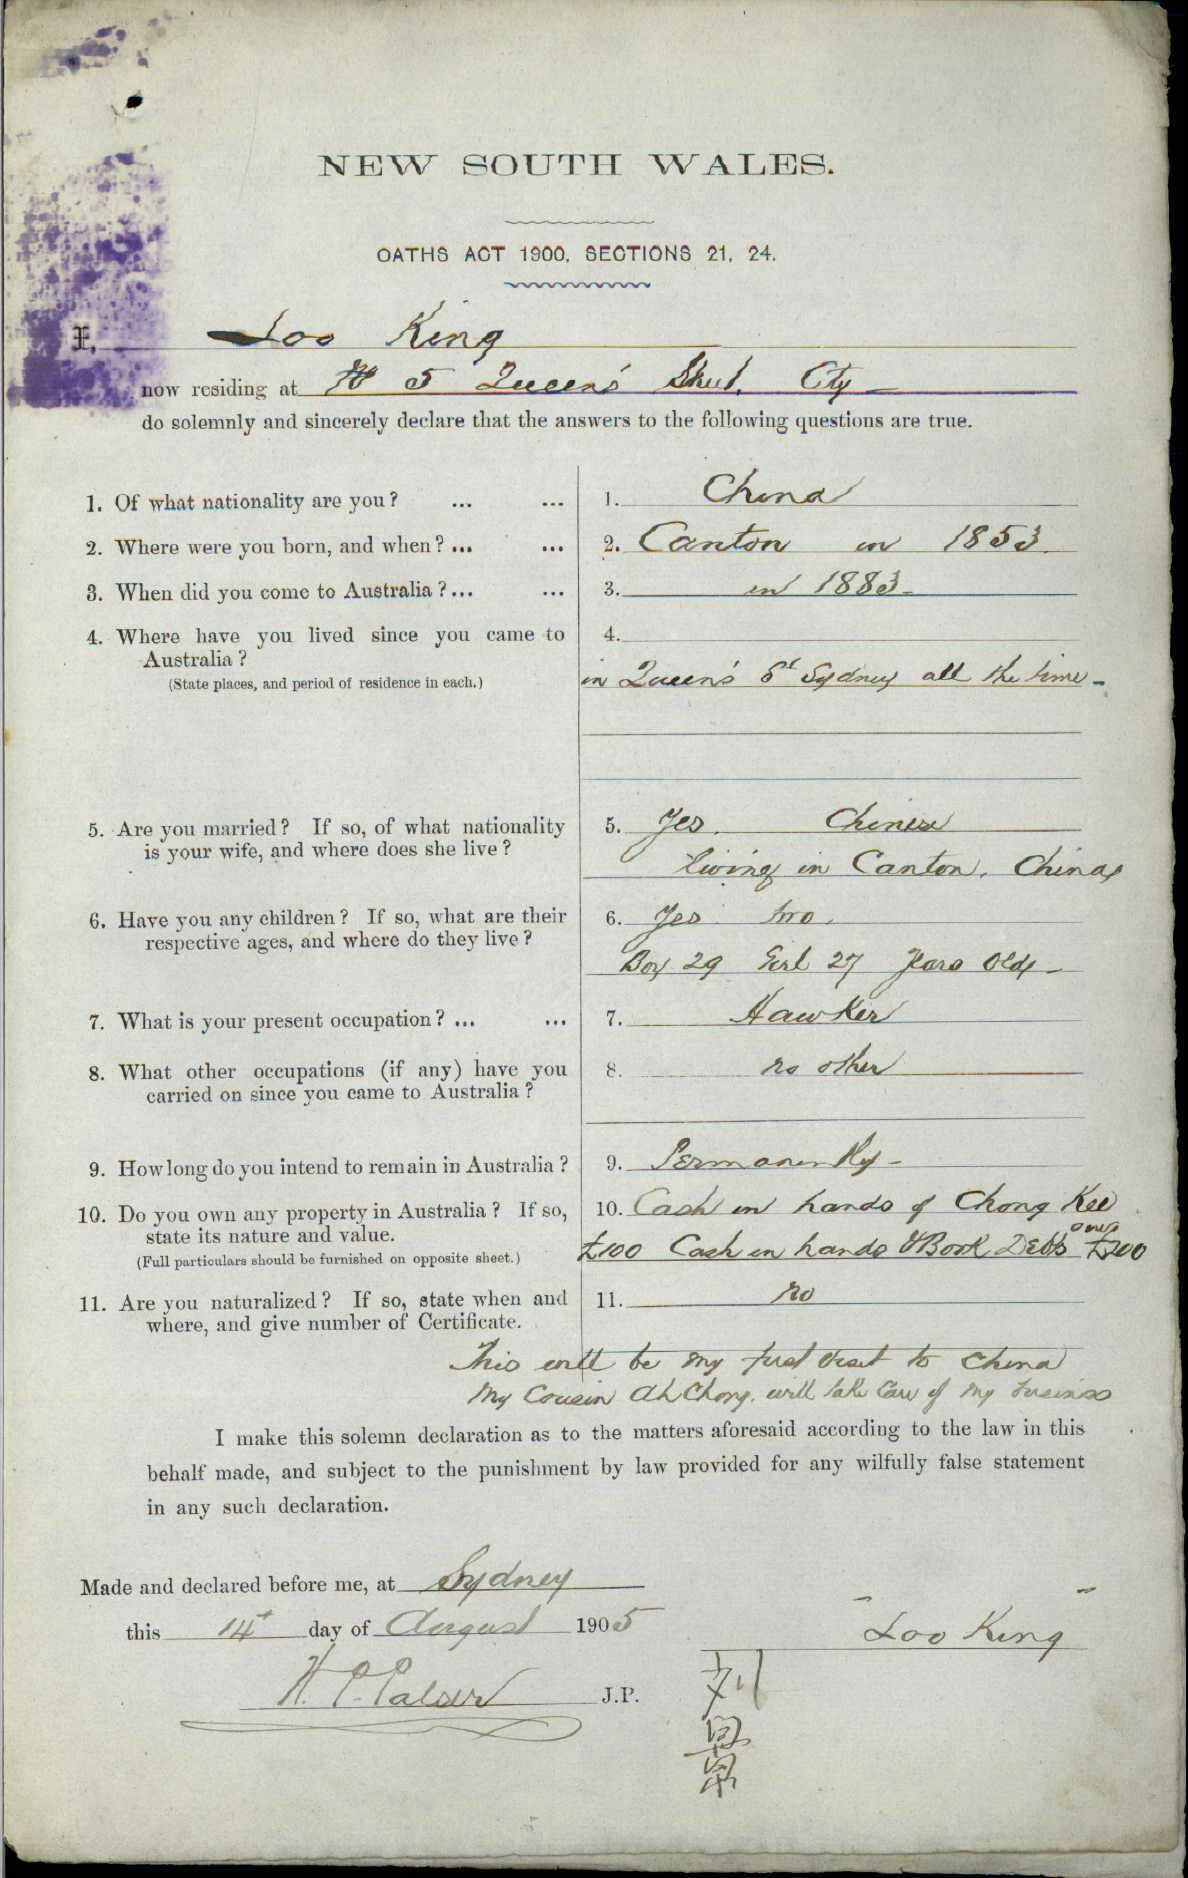 NEW SOUTH WALES.
OATHS ACT 1900, SECTIONS 21, 24.
I, Loo King
now residing at No 5 Queen's Street, City —
do solemnly and sincerely declare that the answers to the following questions are true.
1. Of what nationality are you? ... ... 1. China
2. Where were you born, and when? ... ... 2. Canton in 1853.
3. When did you come to Australia? ... ... 3. in 1883 —
4. Where have you lived since you came to 4.
Australia?
(State places, and period of residence in each.) in Queen's St Sydney all the time —
5. Are you married? If so, of what nationality 5. Yes. Chinese
is your wife, and where does she live? living in Canton, China
6. Have you any children? If so, what are their 6. Yes two.
respective ages, and where do they live? Boy 29 Girl 27 Years Old —
7. What is your present occupation? ... ... 7. Hawker
8. What other occupations (if any) have you 8. no other
carried on since you came to Australia?
9. How long do you intend to remain in Australia? 9. Permanently —
10. Do you own any property in Australia? If so, 10. Cash in hands of Chong Kee
state its nature and value. £100 Cash in hands & Book Debts over £200
(Full particulars should be furnished on opposite sheet.)
11. Are you naturalized? If so, state when and 11. no
where, and give number of Certificate.
This will be my first visit to China
My Cousin Ah Chong. will take Care of my business
I make this solemn declaration as to the matters aforesaid according to the law in this
behalf made, and subject to the punishment by law provided for any wilfully false statement
in any such declaration.
Made and declared before me, at Sydney
this 14t day of August 1905
"Loo King"
H. P. Palser J.P.
刘